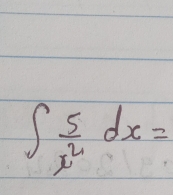 ∫ 5/x² dx =